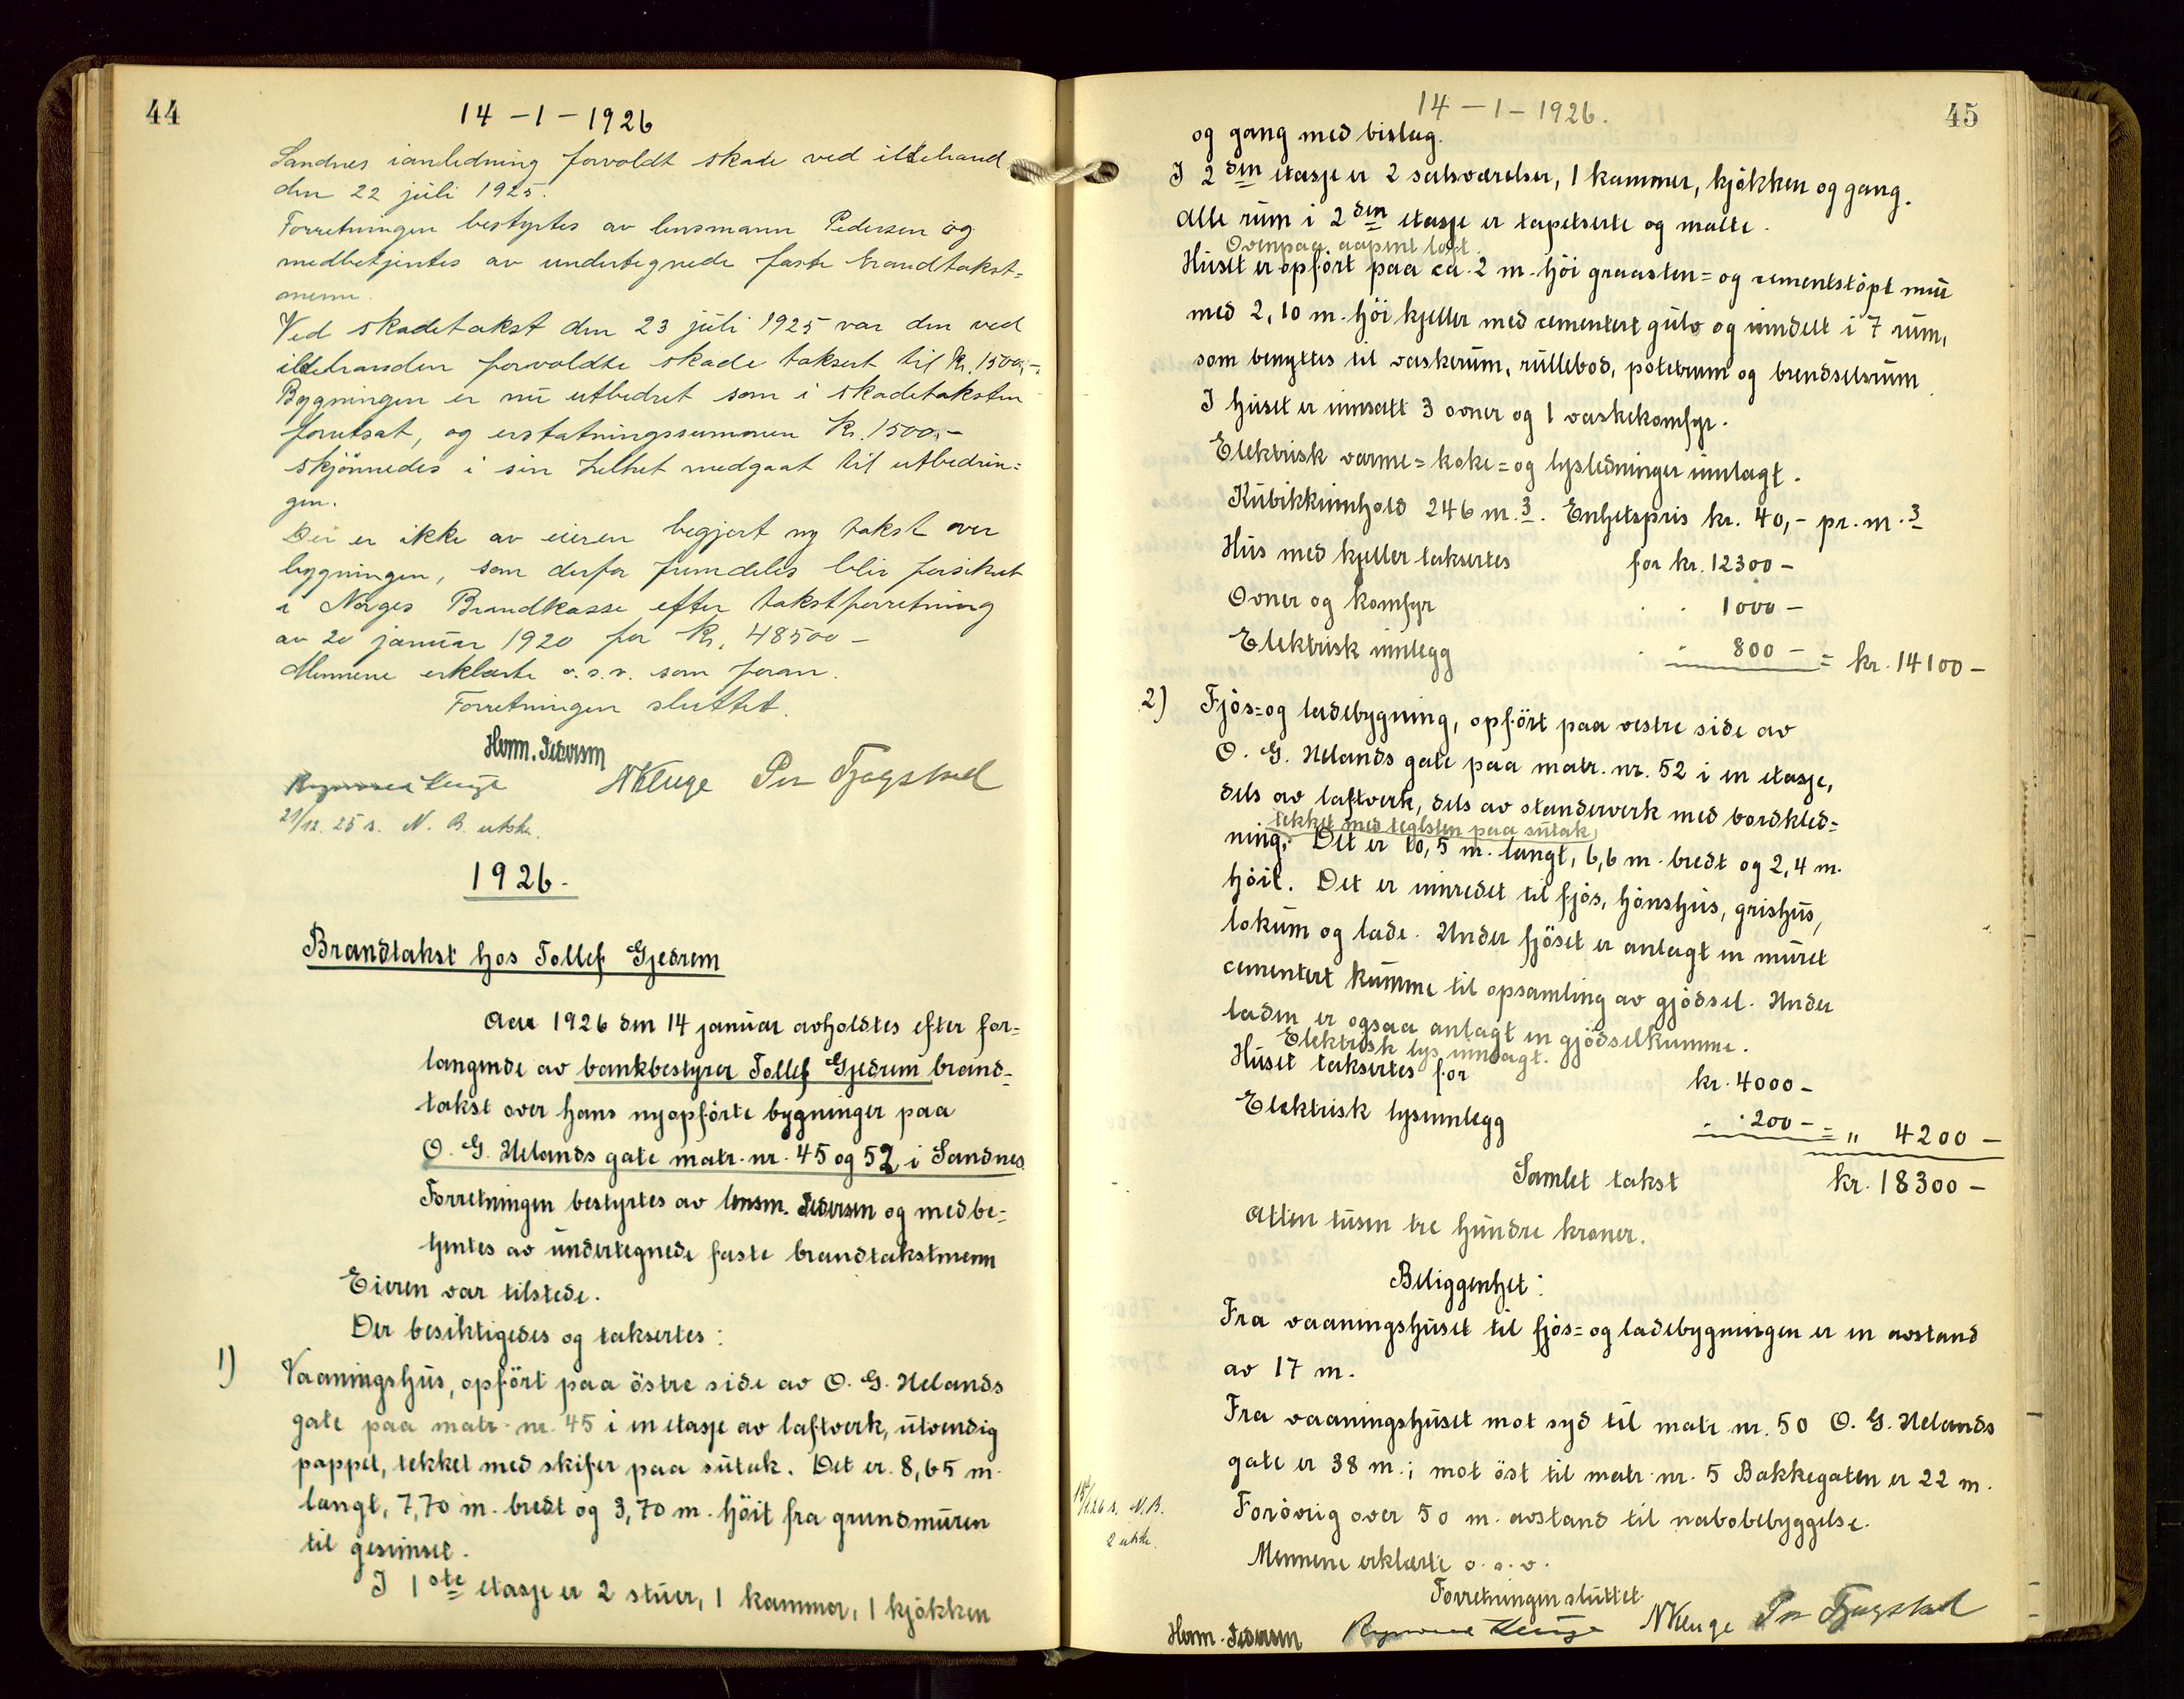 44
14-1-1926
Sandnes i anledning forvoldt skade ved ildebrand
den 22 juli 1925.
Forretningen bestyrtes av lensmann Pedersen og
medbetjentes av undertegnede faste brandtakst=
menn.
Ved skadetakst den 23 juli 1925 var den ved
ildebranden forvoldte skade taksert til kr. 1500,-.
Bygningen er nu utbedret som i skadetaksten
forutsat, og erstatningssummen kr. 1500,-
skjönnedes i sin helhet medgaat til utbedrin=
gen.
Der er ikke av eieren begjert ny takst over
bygningen, som derfor fremdeles blir forsikret
i Norges Brandkasse efter takstforretning
av 20 januar 1920 for kr. 48500-
Mennene erklærte o.s.v. som foran.
Forretningen sluttet.
Herm. Pedersen
N Kluge Per Tjagstad
21/12. 25 s. N. B. utskr.
1926.
Brandtakst hos Tollef Gjedrem
Aar 1926 den 14 januar avholdtes efter for=
langende av bankbestyrer Tollef Gjedrem brand=
takst over hans nyopförte bygninger paa
O. G. Uelands gate matr. nr. 45 og 52 i Sandnes.
Forretningen bestyrtes av lensm. Pedersen og medbe=
tjentes av undertegnede faste brandtakstmenn
Eieren var tilstede.
Der besiktigedes og taksertes:
1) Vaaningshus, opfört paa östre side av O. G. Uelands
gate paa matr. nr. 45 i en etasje av laftverk, utvendig
pappet, tekket med skifer paa sutak. Det er 8,65 m.
langt, 7,70 m. bredt og 3,70 m. höit fra grundmuren
til gesimset.
I 1ste etasje er 2 stuer, 1 kammer, 1 kjökken
45
14-1-1926.
og gang med bislag.
I 2den etasje er 2 soveværelser, 1 kammer, kjökken og gang.
Alle rum i 2den etasje er tapetserte og malte.
Ovenpaa aapent loft.
Huset er opfört paa ca. 2 m. höi graasten= og cementstöpt mur
med 2,10 m. höi kjeller med cementert gulv og inndelt i 7 rum,
som benyttes til vaskerum, rullebod, potetrum og brendselsrum
I huset er innsatt 3 ovner og 1 vaskekomfyr.
Elektrisk varme= koke= og lysledninger innlagt.
Kubikkinnhold 246 m.3. Enhetspris kr. 40,- pr. m.3
Hus med kjeller taksertes for kr. 12300-
Ovner og komfyr . . 1000-
Elektrisk innlegg . . 800- = kr. 14100-
2) Fjös= og ladebygning, opfört paa vestre side av
O. G. Uelands gate paa matr. nr. 52 i en etasje,
dels av laftverk, dels av standerverk med bordkled=
tekket med teglsten paa sutak
ning. Det er 10,5 m. langt, 6,6 m. bredt og 2,4 m.
höit. Det er innredet til fjös, hönshus, grishus,
lokum og lade. Under fjöset er anlagt en muret
cementert kumme til opsamling av gjödsel. Under
laden er ogsaa anlagt en gjödselkumme.
Elektrisk lys innlagt.
Huset taksertes for kr. 4000-
Elektrisk lysinnlegg . . 200- = " 4200-
Samlet takst kr. 18300-
Atten tusen tre hundre kroner.
Beliggenhet:
Fra vaaningshuset til fjös= og ladebygningen er en avstand
av 17 m.
Fra vaaningshuset mot syd til matr. nr. 50 O. G. Uelands
gate er 38 m.; mot öst til matr. nr. 5 Bakkegaten er 22 m.
Forövrig over 50 m. avstand til nabobebyggelse.
Mennene erklærte o. s. v.
Forretningen sluttet
26 s. N.B.
2 utskr.
Herm. Pedersen N Kluge Per Tjagstad